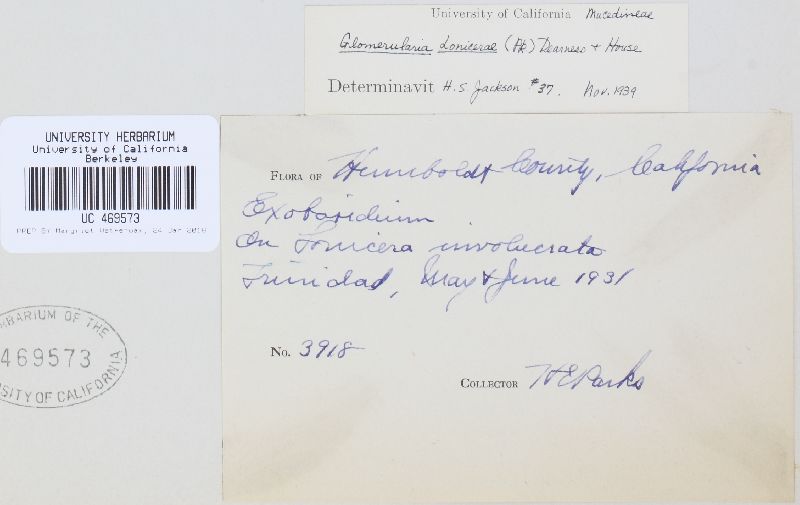 University of California Mucedineae
Glomerularia Lonicerae (Pk) Dearness + House
Determinavit H.S. Jackson #37. Nov. 1939
UNIVERSITY HERBARIUM
University of California
Berkeley
UC 469573
FLORA OF Humboldt County, California
Exobasidium
On Lonicera involucrata
Trinidad, May & June 1931
No. 3918
COLLECTOR H E Parks
RBARIUM OF THE
469573
RSITY OF CALIFORNIA